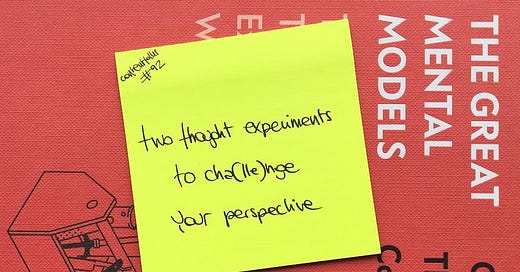 contextualise
#92
two thought experiments
to cha(lle)nge
your perspective
THE GREAT
MENTAL
MODELS